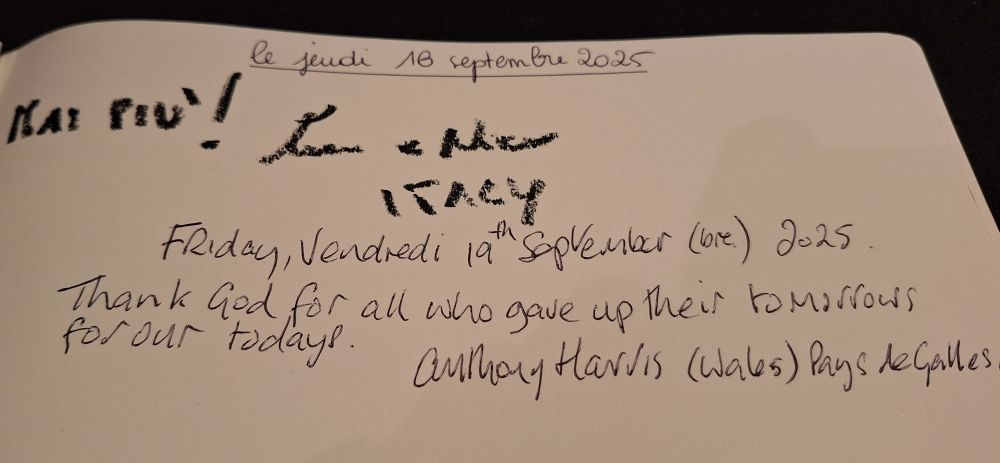 le jeudi 18 septembre 2025
MAI PIU'!
ITALY
FRiday, Vendredi 19th September (bre.) 2025.
Thank God for all who gave up their tomorrows
for our todays.
Anthony Harris (Wales) Pays de Galles.